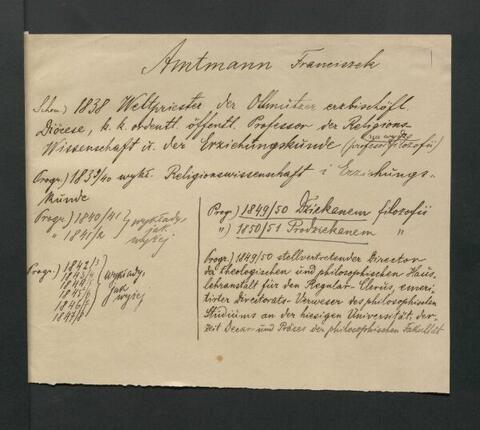 Amtmann Franciszek
Schem.) 1838 Weltpriester der Olmützer erzbischöfl.
Diöcese, k. k. ordentl. öffentl. Professor der Religions-
na wydz.
Wissenschaft u. der Erziehungskunde (profesor filozofii)
Progr.) 1839/40 wykł. Religionswissenschaft i Erziehungs-
kunde
Progr.) 1840/41 } wykłady
„ 1841/2 jak
wyżej
Progr.) 1842/3
1843/4 } wykłady
1844/5 jak
1845/6 wyżej
1846/7
1847/8
Prog.) 1849/50 Dziekanem filozofii
„) 1850/51 Prodziekanem „
Progr.) 1849/50 stellvertretender Director
der theologischen und philosophischen Haus-
lehranstalt für den Regular-Clerus, emeri-
tirter Directorats-Verweser des philosophischen
Studiums an der hiesigen Universität, der-
zeit Decan und Präses der philosophischen Fakultät